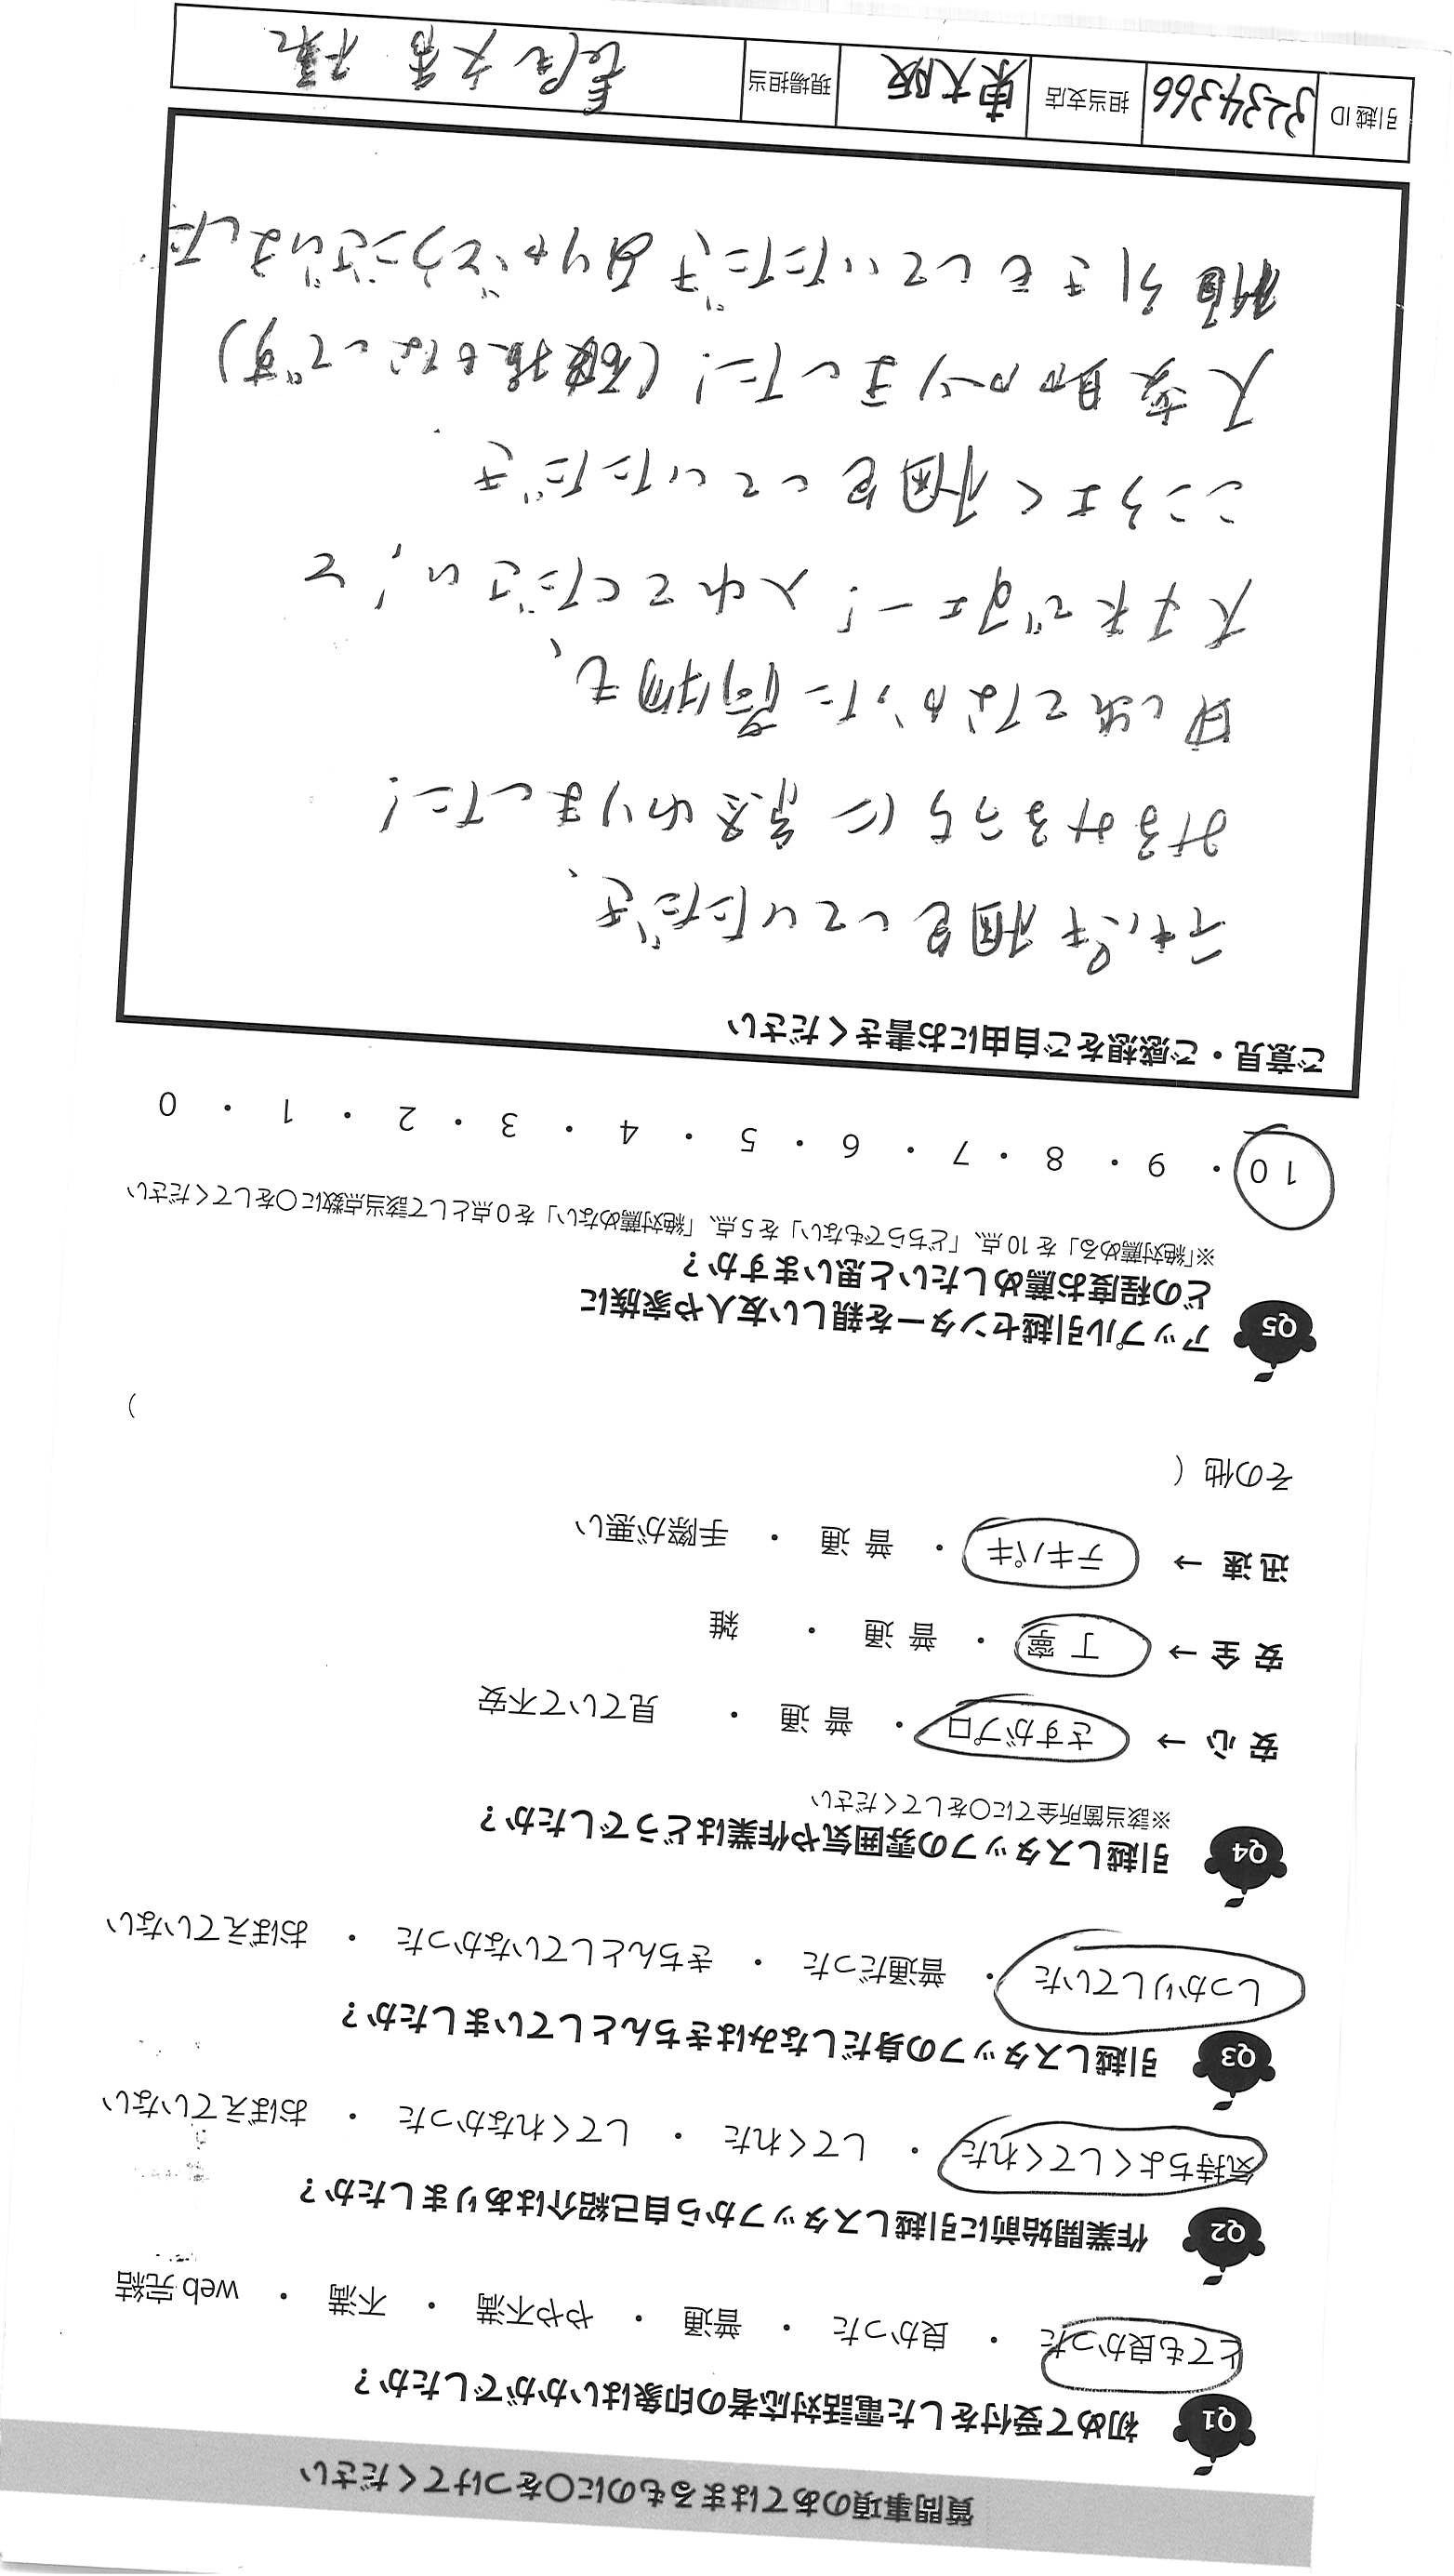 質問事項のあてはまるものに○をつけてください
Q1 初めて受付をした電話対応者の印象はいかがでしたか？
とても良かった ・ 良かった ・ 普通 ・ やや不満 ・ 不満 ・ web完結
Q2 作業開始前に引越しスタッフから自己紹介はありましたか？
気持ちよくしてくれた ・ してくれた ・ してくれなかった ・ おぼえていない
Q3 引越しスタッフの身だしなみはきちんとしていましたか？
しっかりしていた ・ 普通だった ・ きちんとしていなかった ・ おぼえていない
Q4 引越しスタッフの雰囲気や作業はどうでしたか？
※該当箇所全てに○をしてください
安心 → さすがプロ ・ 普通 ・ 見ていて不安
安全 → 丁寧 ・ 普通 ・ 雑
迅速 → テキパキ ・ 普通 ・ 手際が悪い
その他（ ）
Q5 アップル引越センターを親しい友人や家族に
どの程度お薦めしたいと思いますか？
※「絶対薦める」を10点、「どちらでもない」を5点、「絶対薦めない」を0点として該当点数に○をしてください
10 ・ 9 ・ 8 ・ 7 ・ 6 ・ 5 ・ 4 ・ 3 ・ 2 ・ 1 ・ 0
ご意見・ご感想をご自由にお書きください
テキパキ梱包していただき、
みるみるうちに景色かわりました！
申し出てなかった荷物も、
大丈夫ですよー！入れてください、と
こころよく梱包していただき
大変助かりました！（破損もないです）
値引きもしていただきありがとうございました
引越ID 3234366 担当支店 東大阪 現場担当